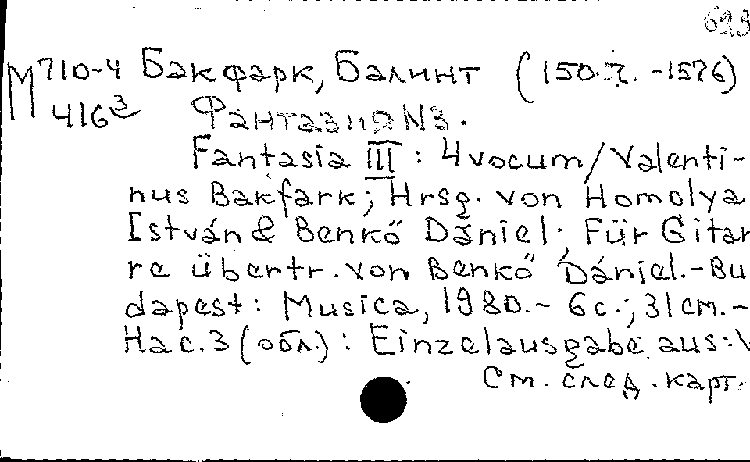 623
М 710-4 Бакфарк, Балинт (150.7. -1576)
416³ Фантазия N3.
Fantasia III : 4 vocum / Valenti-
nus Bakfark; Hrsg. von Homolya
István & Benkő Dániel; Für Gitar
re übertr. von Benkő Dániel. - Bu
dapest : Musica, 1980. - 6 с.; 31 cm. -
На с. 3 (обл.) : Einzelausgabe aus: V
См. след. карт.